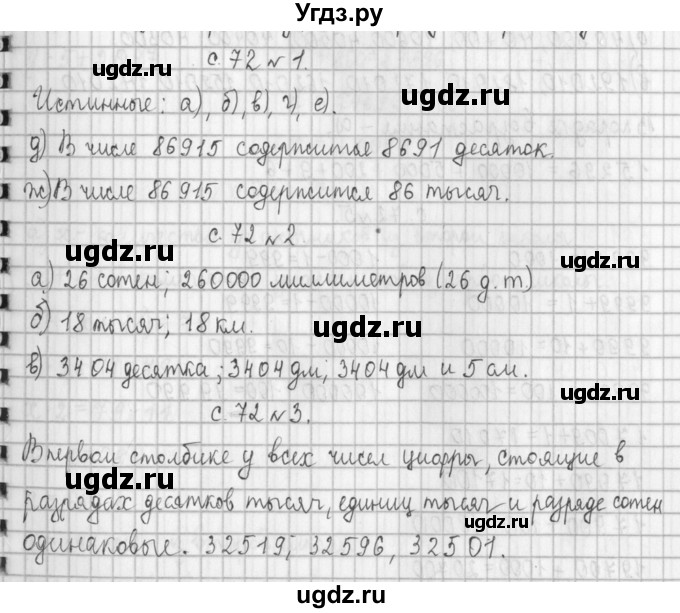 Угдз.ру
с. 72 № 1.
Истинные: а), б), в), г), е).
д) В числе 86915 содержится 8691 десяток.
ж) В числе 86915 содержится 86 тысяч.
с. 72 № 2
а) 26 сотен; 260000 миллиметров (26 д.т)
б) 18 тысяч; 18 км.
в) 3404 десятка; 3404 дм; 3404 дм и 5 см.
с. 72 № 3.
В первом столбике у всех чисел цифры, стоящие в
разрядах десятков тысяч, единиц тысяч и разряде сотен
одинаковые. 32519; 32596, 32501.
ugdz.ru
ugdz.ru
ugdz.ru
ugdz.ru
ugdz.ru
ugdz.ru
ugdz.ru
ugdz.ru
ugdz.ru
ugdz.ru
ugdz.ru
ugdz.ru
ugdz.ru